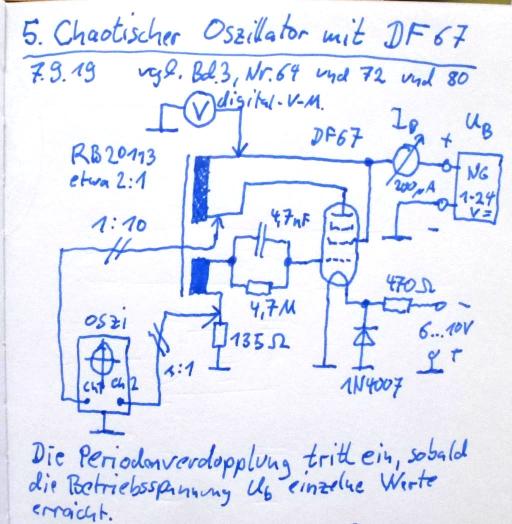 5. Chaotischer Oszillator mit DF67
7.9.19 vgl. Bd.3, Nr.64 und 72 und 80
V digital-V-M.
DF67
I_B
U_B
+
RB20113
etwa 2:1
200µA
NG
1-24
V=
-
1:10
4,7nF
4,7M
470Ω
-
6...10V
+
Oszi
135Ω
1:1
Ch1 Ch2
1N4007
Die Periodenverdopplung tritt ein, sobald
die Betriebsspannung U_b einzelne Werte
erreicht.